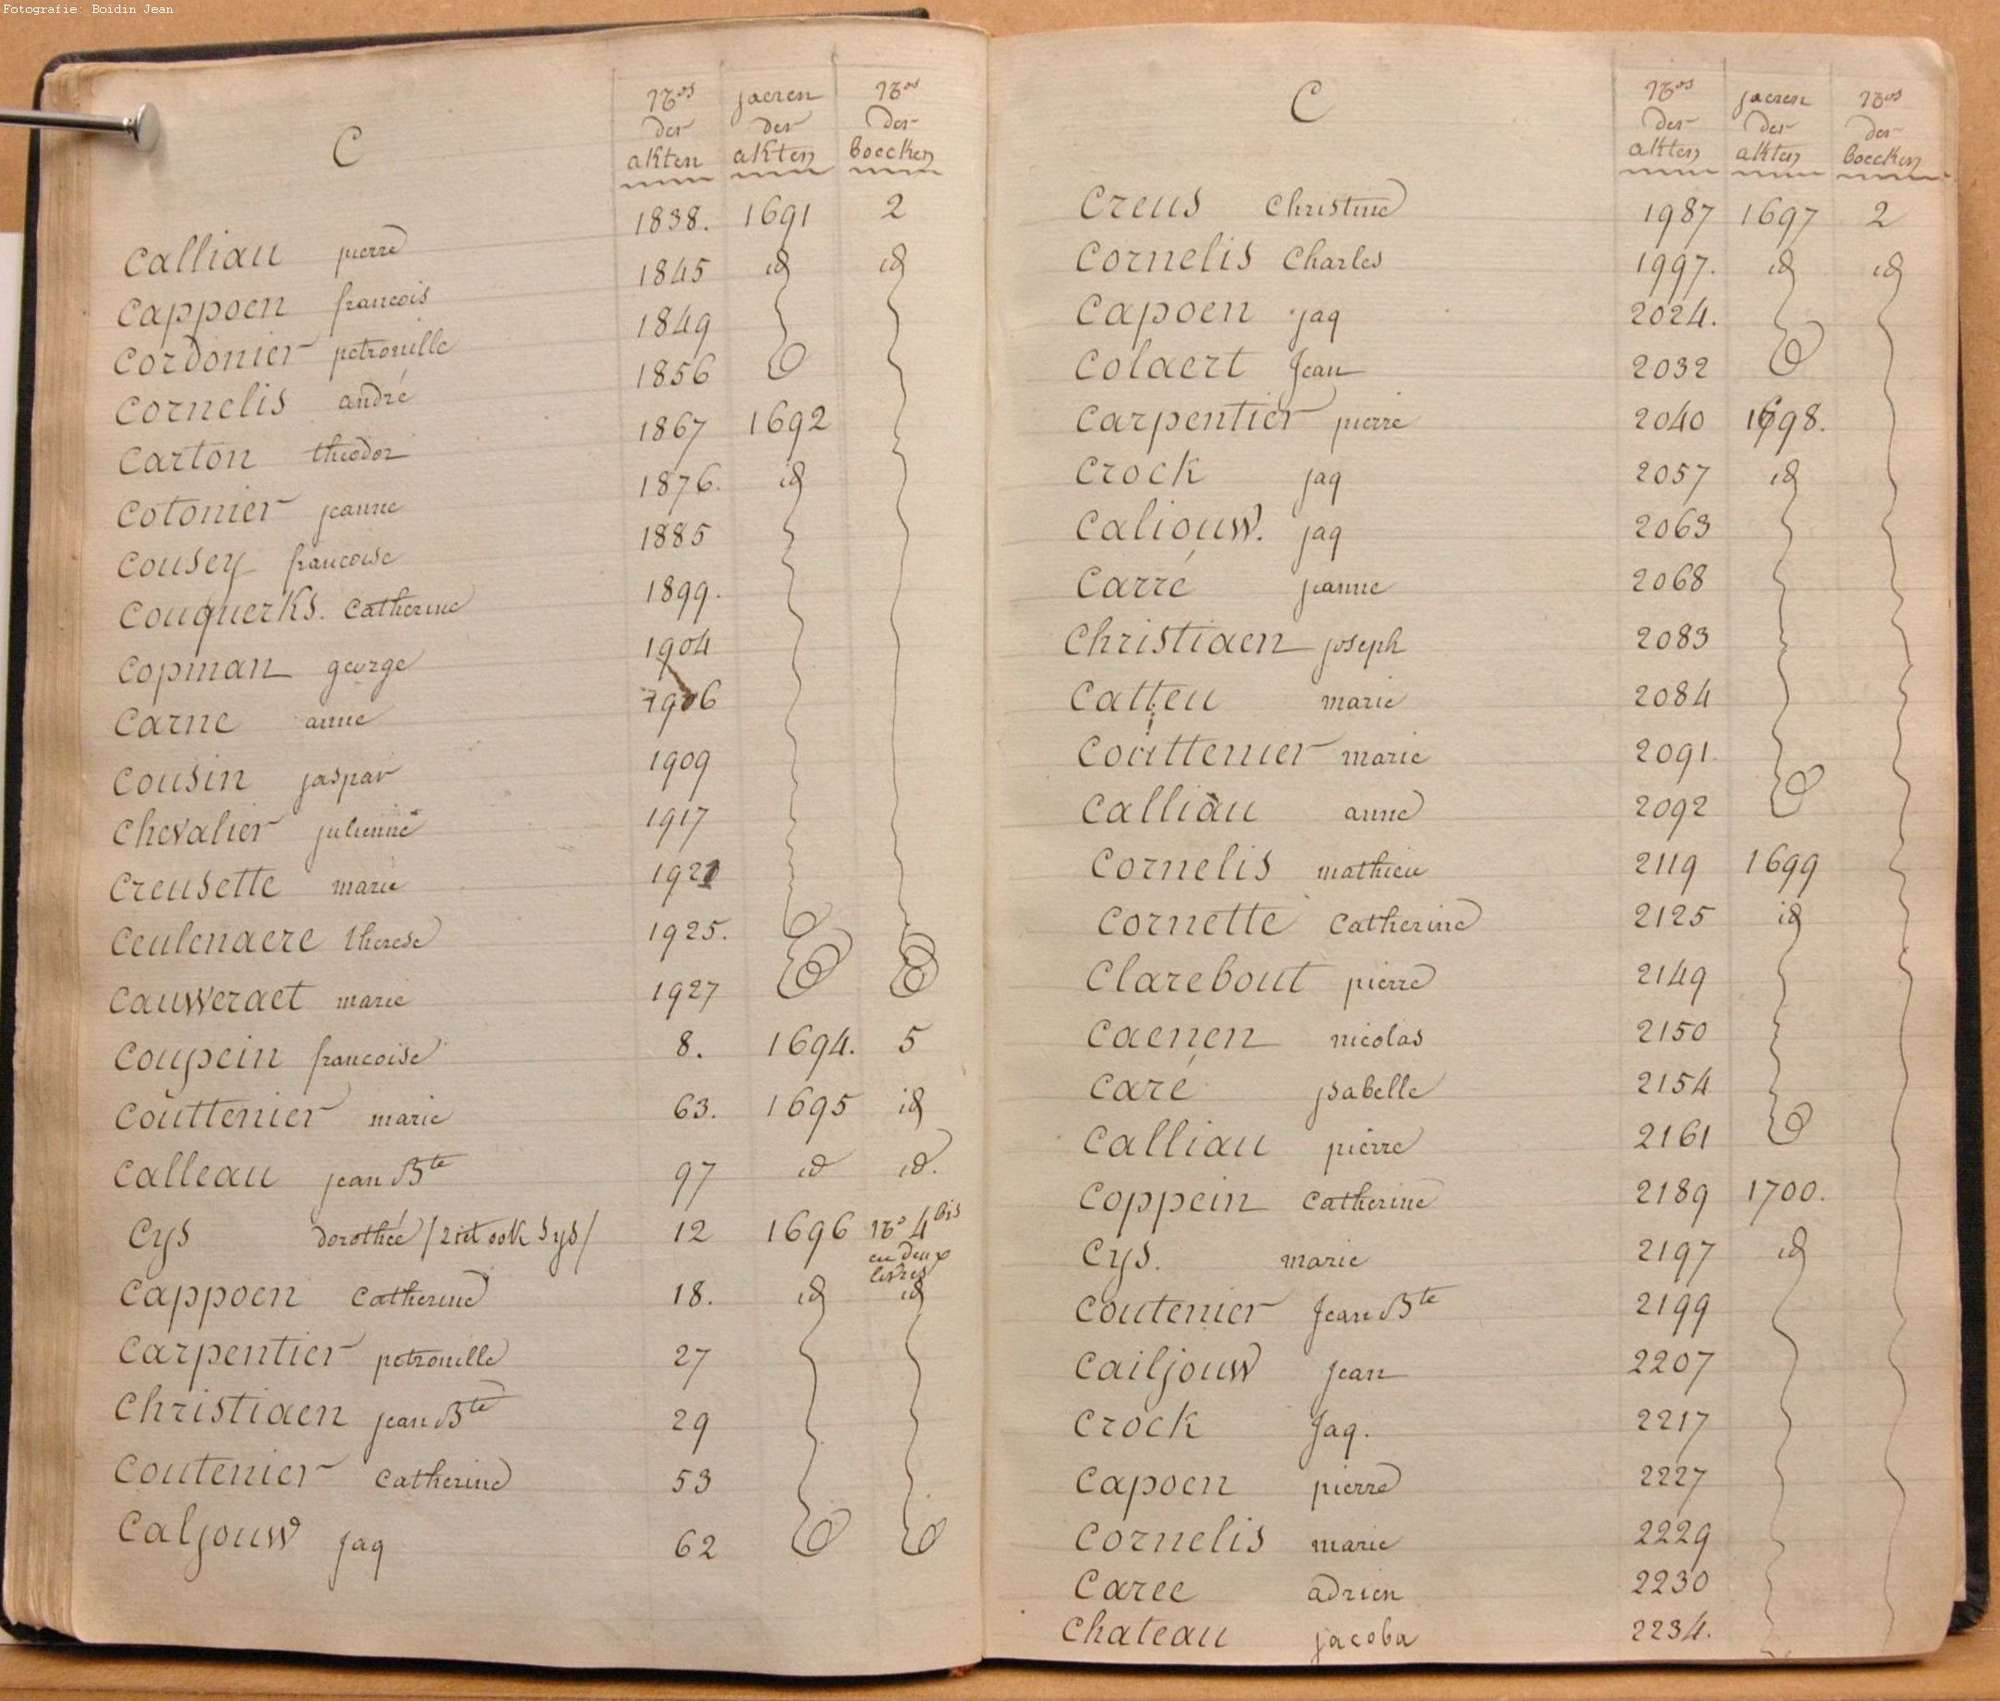 Fotografie: Boidin Jean
C
Nos der akten
jaeren der akten
Nos der boecken
Calliau pierre 1838. 1691 2
Cappoen francois 1845 id id
Cordonier petronille 1849
Cornelis andré 1856
Carton theodor 1867 1692
Cotonier jeanne 1876. id
Cousey francoise 1885
Couquerks. Catherine 1899.
Copman george 1904
Carne anne 1906
Cousin jaspar 1909
Chevalier julienne 1917
Creusette marie 1921
Ceulenaere therese 1925.
Cauweraet marie 1927
Coupein francoise 8. 1694. 5
Couttenier marie 63. 1695 id
Calleau jean Bte 97 id id.
Cys dorothée /ziet ook Sys/ 12 1696 No 4bis
en deux
livres
Cappoen Catherine 18. id id
Carpentier petronille 27
Christiaen jean Bte 29
Coutenier Catherine 53
Caljouw jaq 62
C
Nos der akten
jaeren der akten
Nos der boecken
Creus Christine 1987 1697 2
Cornelis Charles 1997. id id
Capoen jaq 2024.
Colaert Jean 2032
Carpentier pierre 2040 1698.
Crock jaq 2057 id
Caliouw. jaq 2063
Carré jeanne 2068
Christiaen joseph 2083
Catteu marie 2084
Couttenier marie 2091.
Calliau anne 2092
Cornelis mathieu 2119 1699
Cornette Catherine 2125 id
Clarebout pierre 2149
Caenen nicolas 2150
Caré jsabelle 2154
Calliau pierre 2161
Coppein Catherine 2189 1700.
Cys. marie 2197 id
Coutenier Jean Bte 2199
Cailjouw Jean 2207
Crock Jaq. 2217
Capoen pierre 2227
Cornelis marie 2229
Caree adrien 2230
Chateau jacoba 2234.